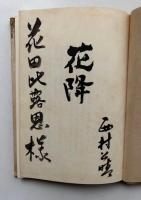 花降
西村公晴
花田比露思様